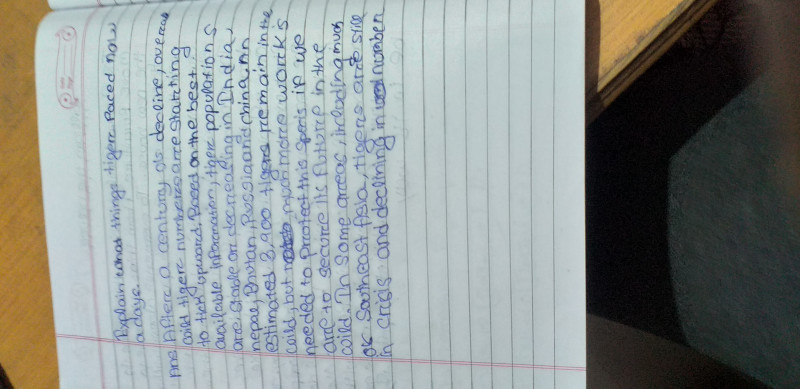 Explain what things tigerc Faced now
a days.
Ans Afterc a century of decline, overcall
wild tigerc numbers arce starcting
to tick upward. Based on the best
available information, tigerc populations
are stable orc decreasing in India,
nepal, Bhutan, Russia and china. An
estimated 3,900 tigers remain in the
wild, but much morce works
needed to protect this speris if we
arce to secure its future in the
wild. In some arceas, including much
of Southeast Asia, tigers arce still
in crisis and declining in number.